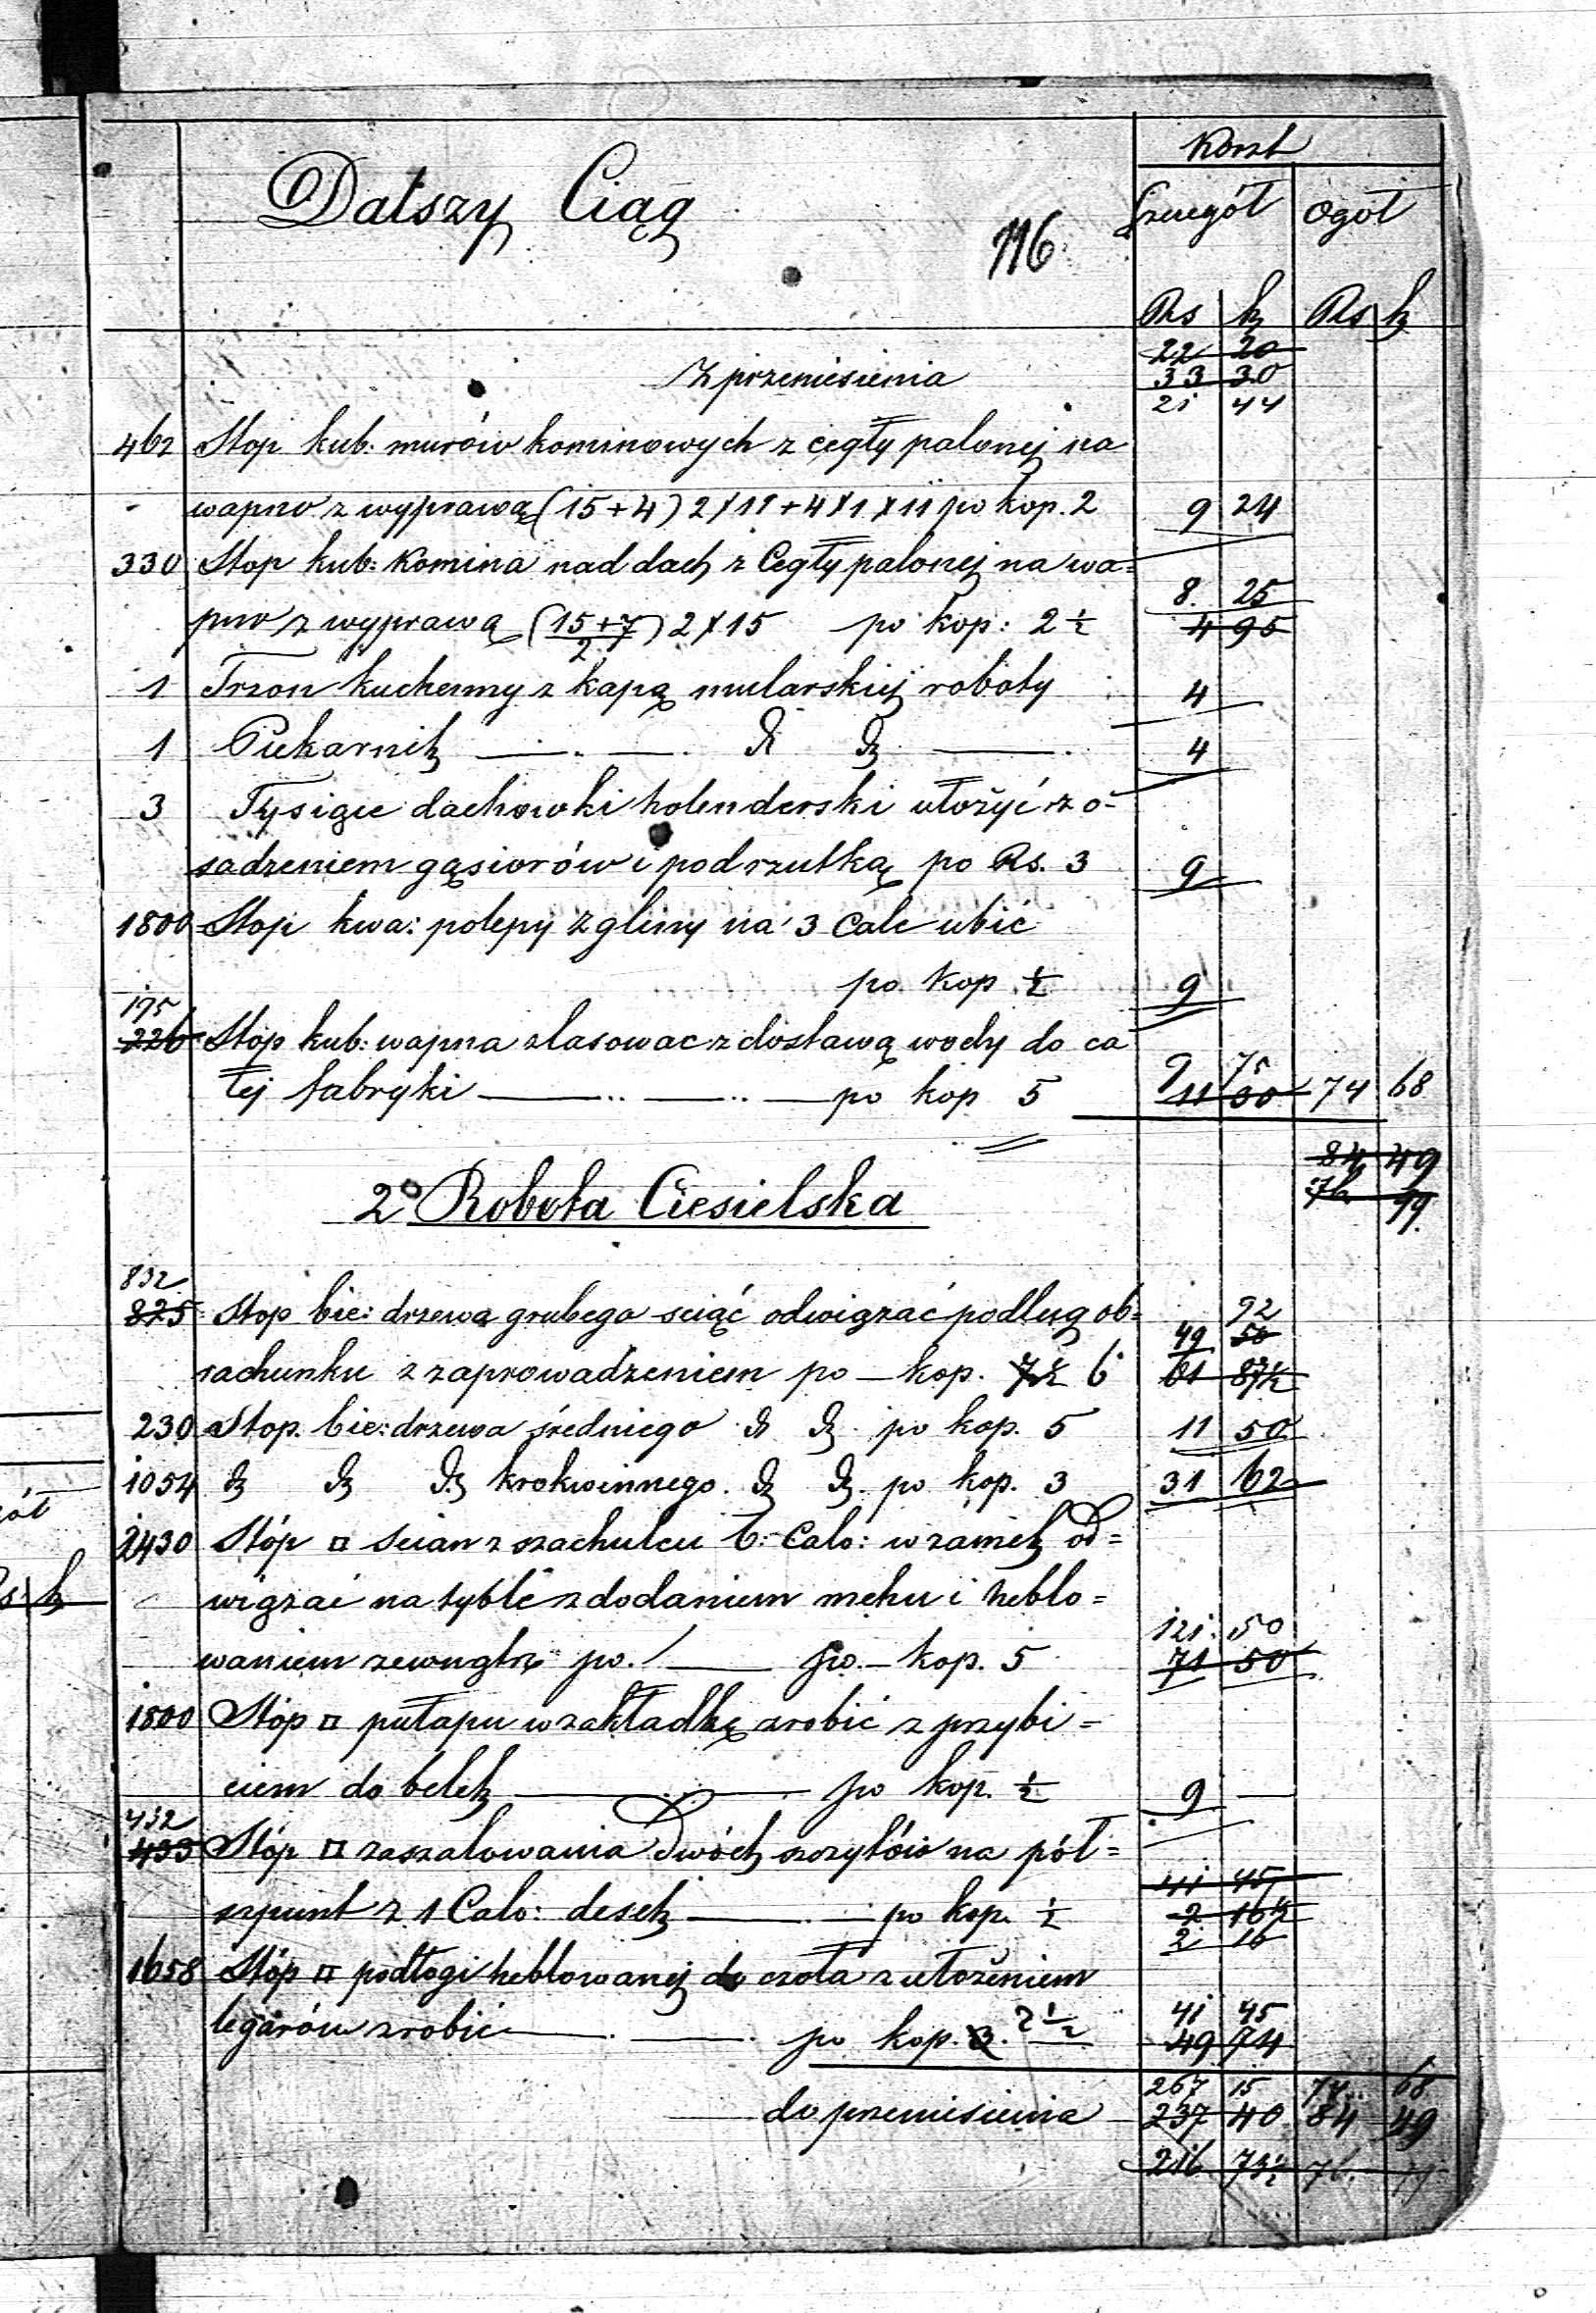 Koszt
Dalszy Ciąg
Szczegół Ogół
116
Rs k Rs k
22 20
z przeniesienia 33 30
21 44
462 Stop kub: murów kominowych z cegły palonej na
wapno z wyprawą (15+4) 2×11+4×1×11 po kop. 2 9 24
330 Stop kub: Komina nad dach z Cegły palonej na wa=
8. 25
pno z wyprawą (15+7/2) 2×15 po kop: 2½ 4 95
1 Trzon kuchenny z kapą mularskiej roboty 4
1 Piekarnik 4
3 Tysiące dachowki holenderski ułożyć z o-
sadzeniem gąsiorów i podrzutką po Rs. 3 9
1800 Stop kwa: polepy z gliny na 3 Cale ubić
po kop ½ 9
195
226 Stop kub: wapna zlasowac z dostawą wody do ca
9 75
łej fabryki po kop 5 11 30 74 68
84 49
2o Robota Ciesielska 76 99
832
825 Stop bie: drzewa grubego sciąć odwiązać podług ob=
49 92
50
rachunku z zaprowadzeniem po kop. 7½ 6 61 87½
230 Stop. bie: drzewa średniego po kop. 5 11 50
1054 krokwiennego. po kop. 3 31 62
2430 Stóp □ scian z szachulcu 6: Calo: w zamek od=
wiązać na tyble z dodaniem mchu i heblo=
121. 50
waniem zewnątrz po. po. kop. 5 71 50
1800 Stóp □ pułapu w zakładkę zrobić z przybi=
ciem do belek po kop. ½ 9 —
432
433 Stóp □ zaszalowania Dwóch szczytów na pół=
41 45
szpunt z 1 Calo: desek po kop. ½ 2 16½
2 16
1658 Stóp □ podłogi heblowanej do czoła z ułożeniem
41 45
legarów zrobić po kop. 3. 2½ 49 74
267 15 74 68
do przeniesienia 237 40 84 49
216 73½ 76. 99